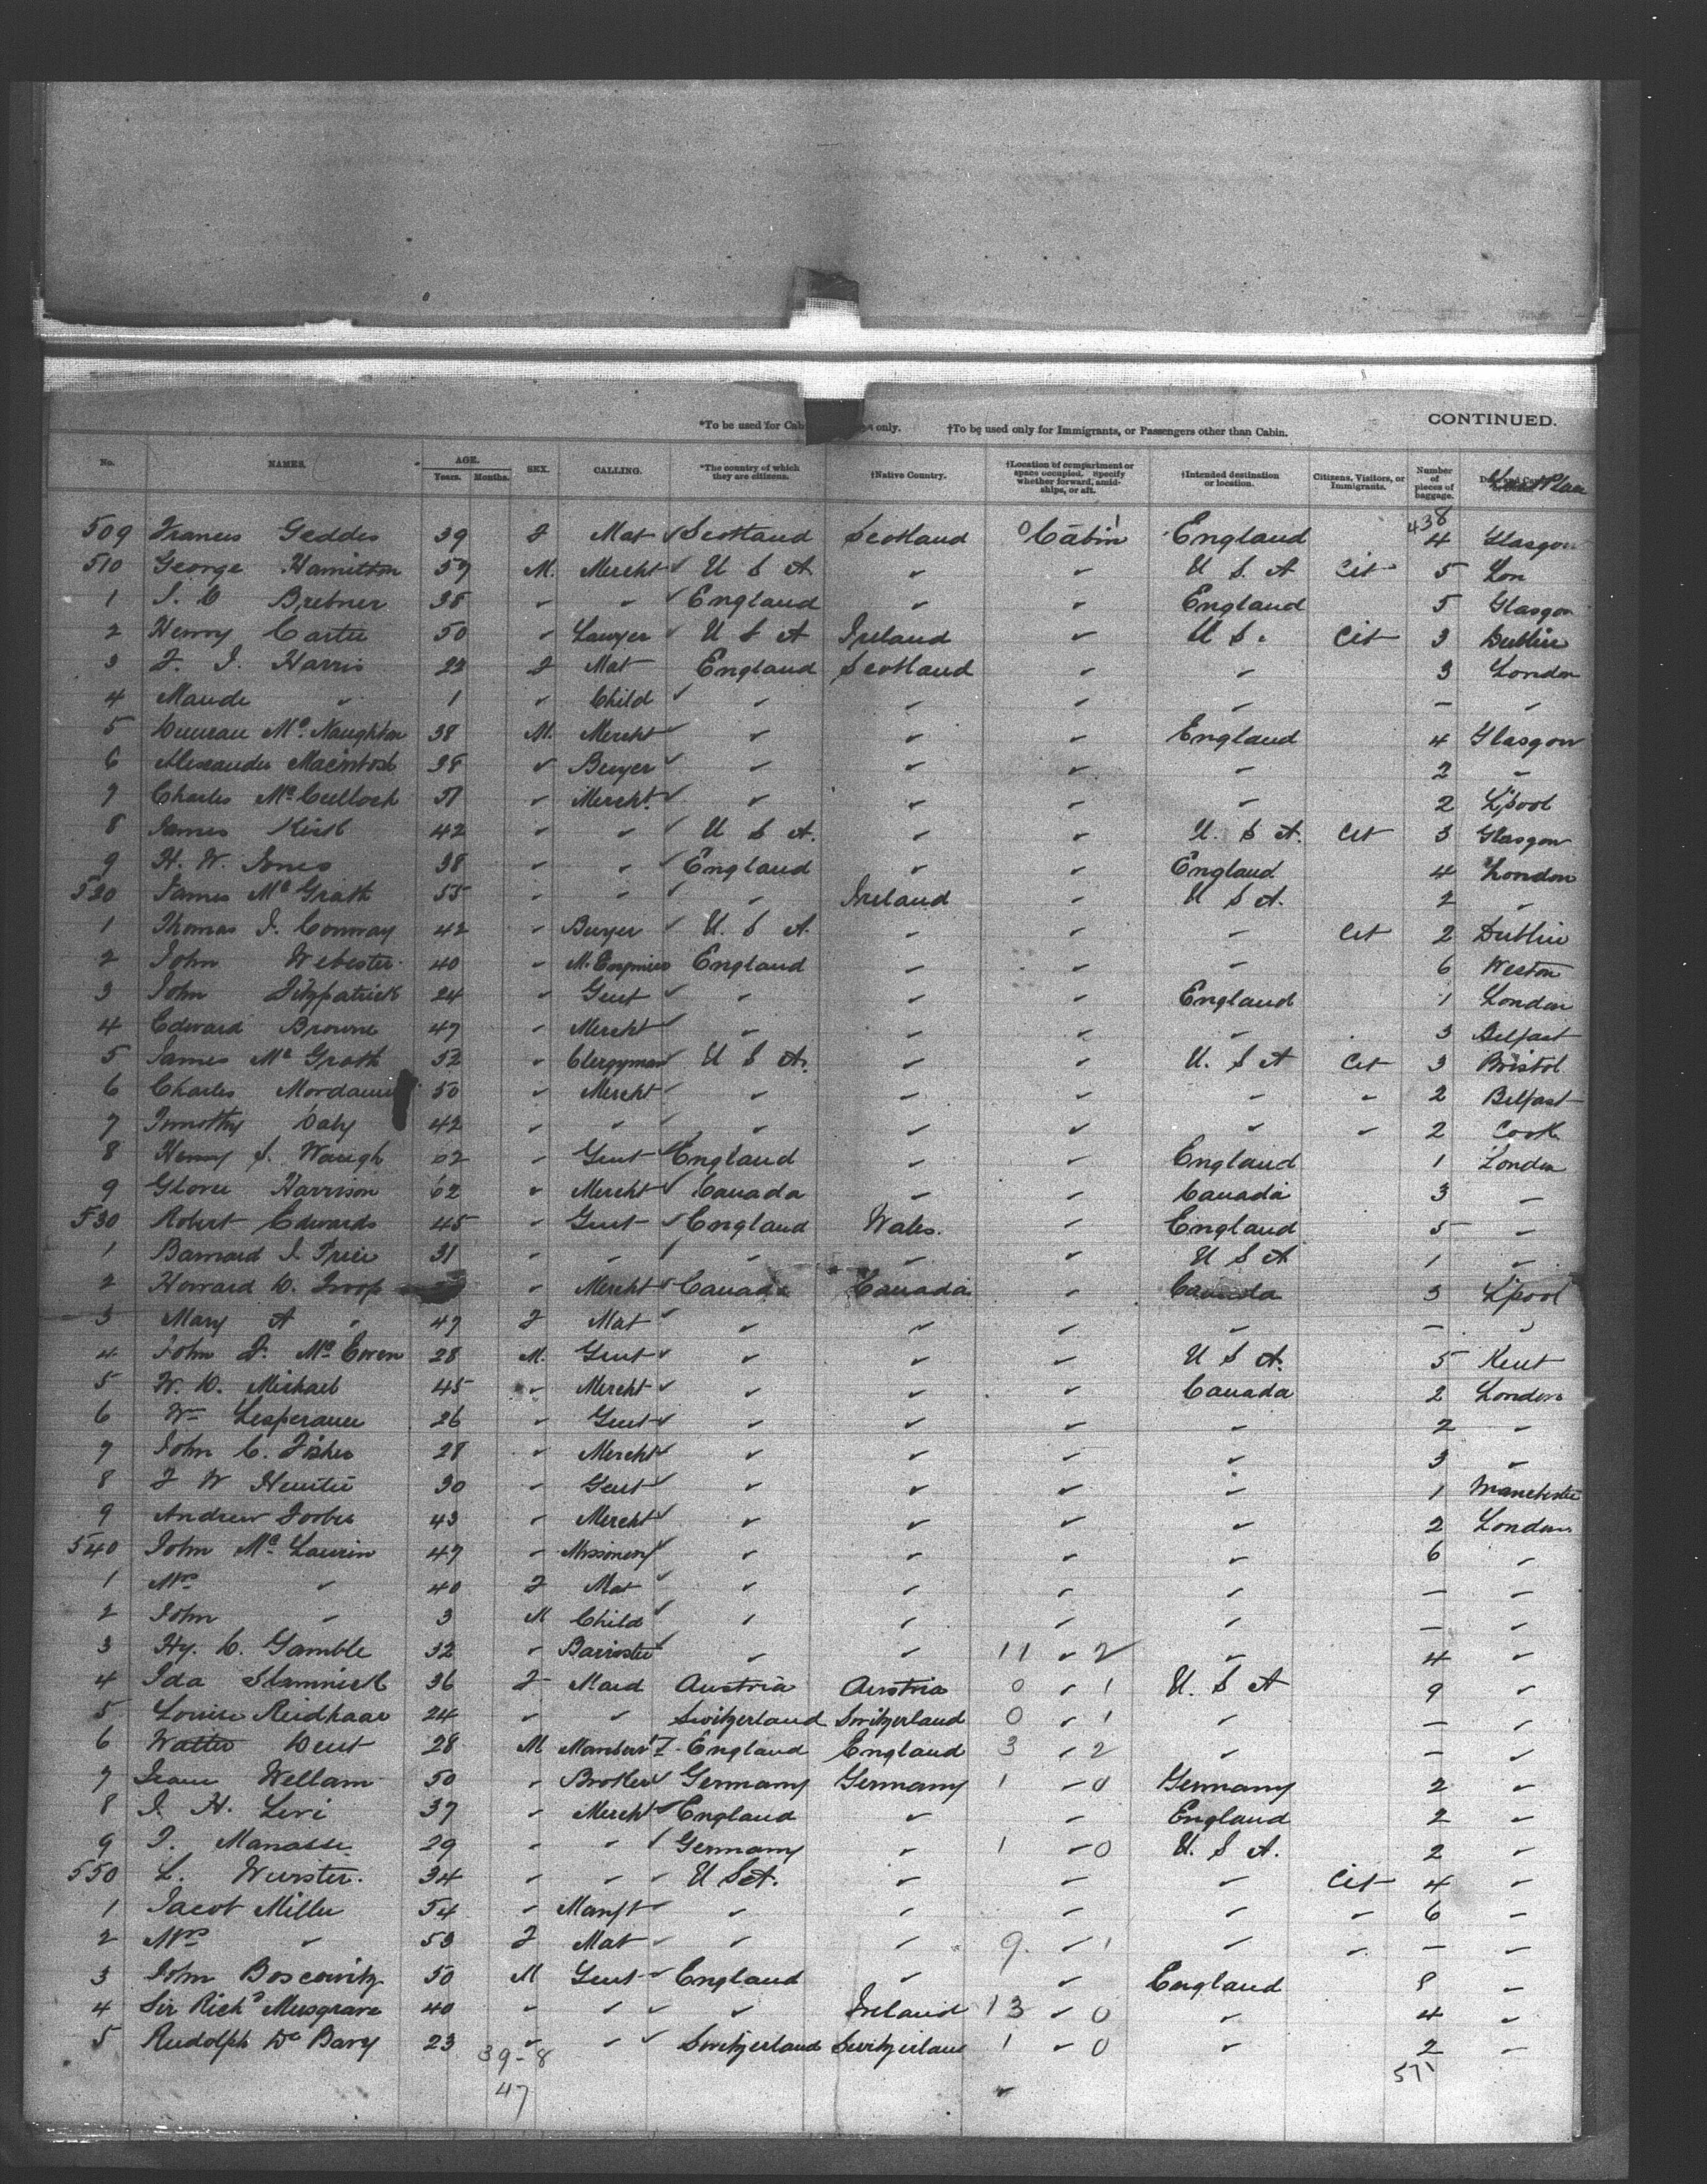 CONTINUED.
*To be used for Cab only. †To be used only for Immigrants, or Passengers other than Cabin.
No. NAMES. AGE. Years. Months. SEX. CALLING. *The country of which they are citizens. †Native Country. †Location of compartment or space occupied. Specify whether forward, amidships, or aft. †Intended destination or location. Citizens, Visitors, or Immigrants. Number of pieces of baggage. Last Place
438
509 Frances Geddes 39 F Mat ✓ Scotland Scotland 0 Cabin 1 England 4 Glasgow
510 George Hamilton 57 M. Mercht ✓ U S A " " U. S. A Cit 5 Lon
1 J. C Bretner 38 " " ✓ England " " England 5 Glasgow
2 Henry Carter 50 " Lawyer ✓ U S A Ireland " U S. Cit 3 Dublin
3 F. J. Harris 23 F Mat England Scotland " " 3 London
4 Maude " 1 " Child ✓ " " " " — "
5 Duncan Mc Naughton 38 M. Mercht ✓ " " " England 4 Glasgow
6 Alexander Macintosh 38 " Buyer ✓ " " " " 2 "
7 Charles Mc Culloch 51 " Mercht. ✓ " " " " 2 L'pool
8 James 42 " " ✓ U S A. " " U. S A. Cit 3 Glasgow
9 H. W. Jones 38 " " ✓ England " " England 4 London
520 James Mc Grath 55 " " ✓ " Ireland " U S A. 2 "
1 Thomas J. Conway 42 " Buyer ✓ U. S A. " " " Cit 2 Dublin
2 John Webester 40 " M. Engineer England " " " 6 Weston
3 John Fitzpatrick 24 " Gent ✓ " " " England 1 London
4 Edward Browne 47 " Mercht ✓ " " " " 3 Belfast
5 James Mc Grath 52 " Clergyman ✓ U S A. " " U. S A Cit 3 Bristol
6 Charles Mordaunt 50 " Mercht ✓ " " " " " 2 Belfast
7 Timothy Daly 42 " " ✓ " " " " " 2 Cook
8 Henry S. Waugh 62 " Gent ✓ England " " England 1 London
9 Glover Harrison 62 " Mercht ✓ Canada " " Canada 3 "
530 Robert Edwards 45 " Gent ✓ England Wales. " England 5 "
1 Barnard J. Price 31 " " ✓ " " " U S A 1 "
2 Howard D. Troop " Mercht ✓ Canada Canada " Canada 3 L'pool
3 Mary A " 47 F Mat ✓ " " " " — "
4 John F. Mc Ewen 28 M. Gent ✓ " " " U S A. 5 Kent
5 W. D. Michael 45 " Mercht ✓ " " " Canada 2 London
6 Wm Lesperance 26 " Gent ✓ " " " " 2 "
7 John C. Fisher 28 " Mercht ✓ " " " " 3 "
8 F W Hewitt 30 " Gent ✓ " " " " 1 Manchester
9 Andrew Forbes 43 " Mercht ✓ " " " " 2 London
540 John Mc Laurin 47 " Missionery ✓ " " " " 6 "
1 Mrs " 40 F Mat ✓ " " " " — "
2 John " 3 M Child ✓ " " " " — "
3 Hy. C. Gamble 32 " Barrister ✓ " " 11 " 2 " 4 "
4 Ida 36 F Maid Austria Austria 0 " 1 U. S A 9 "
5 Louise Reidhaar 24 " " Switzerland Switzerland 0 " 1 " — "
6 Walter Dent 28 M England England 3 " 2 " — "
7 Wellam 50 " Broker ✓ Germany Germany 1 " 0 Germany 2 "
8 J. H. Levi 37 " Mercht ✓ England " " England 2 "
9 J. Manasse 29 " " ✓ Germany " 1 " 0 U. S A. 2 "
550 L. Wurster. 34 " " ✓ U S A. " " " Cit 4 "
1 Jacob Miller 54 " Manft ✓ " " " " " 6 "
2 Mrs " 53 F Mat ✓ " " 9 " 1 " " — "
3 John Boscowitz 50 M Gent ✓ England " " England 8 "
4 Sir Richd Musgrave 40 " " ✓ " Ireland 13 " 0 " 4 "
5 Rudolph De Bary 23 " " ✓ Switzerland Switzerland 1 " 0 " 2 "
39-8
47 571